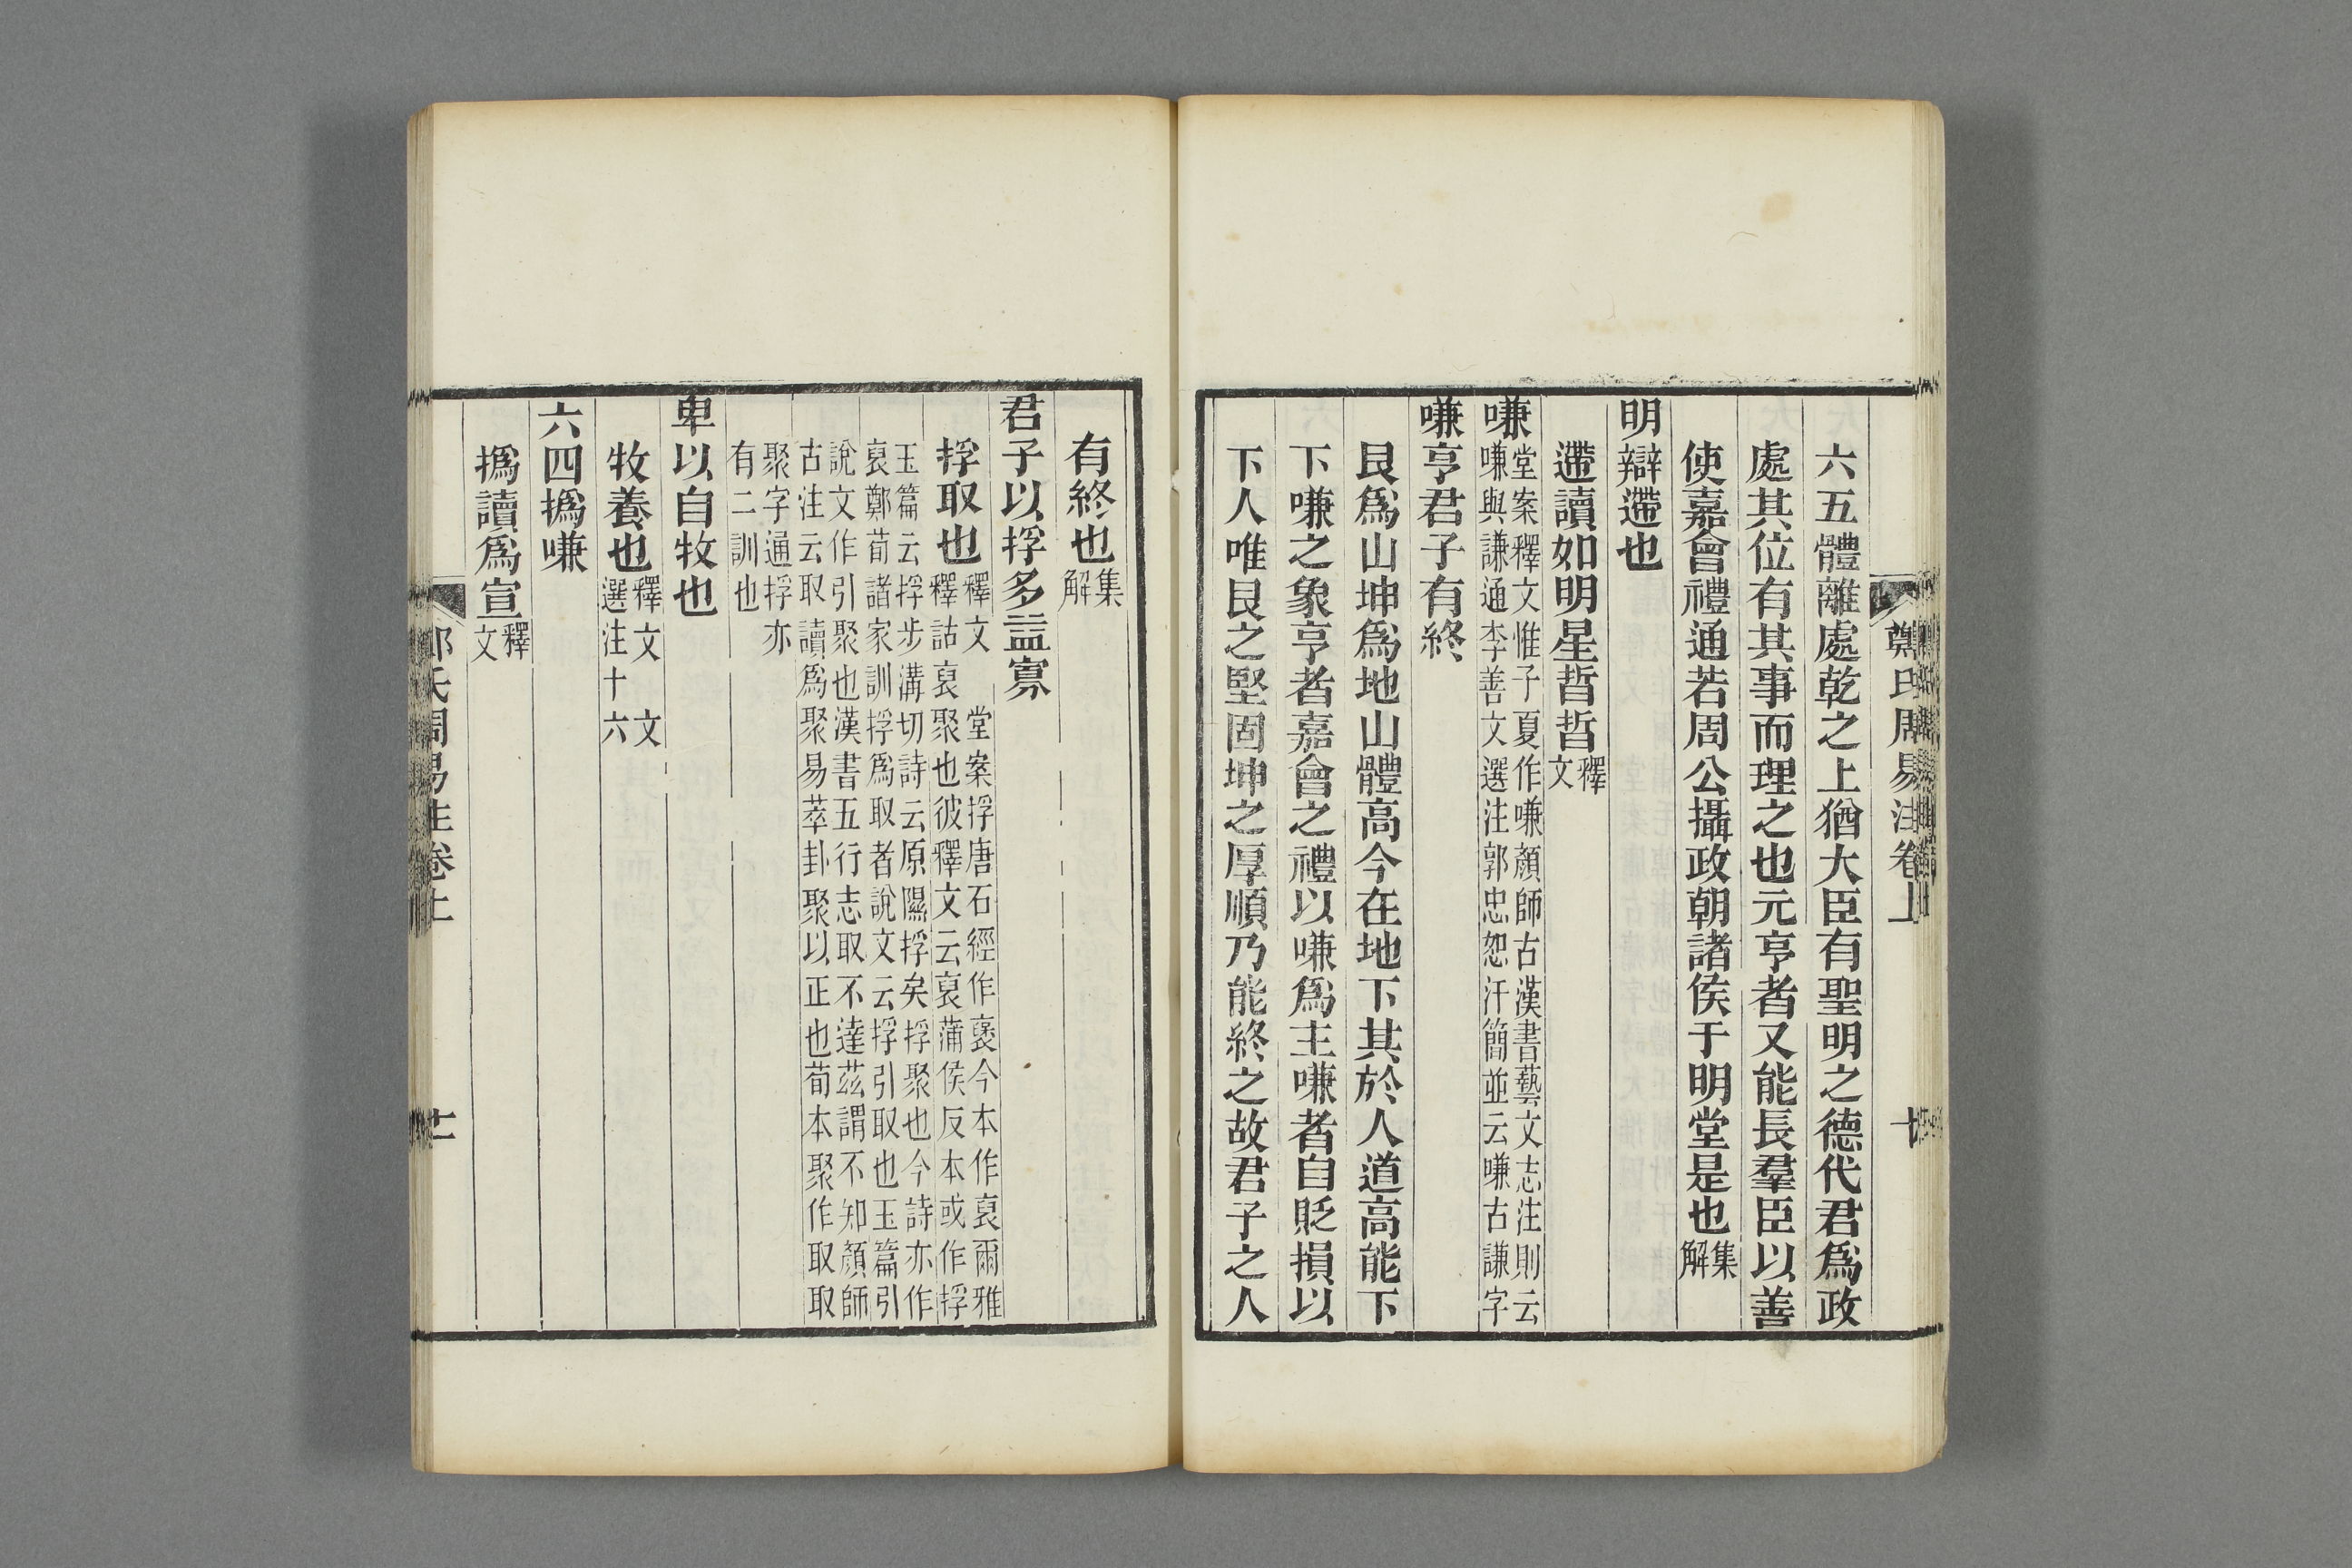 鄭氏周易注卷上 十
六五體離處乾之上猶大臣有聖明之德代君爲政
處其位有其事而理之也元亨者又能長羣臣以善
使嘉會禮通若周公攝政朝諸侯于明堂是也集解
明辯遰也
遰讀如明星晢晢釋文
嗛堂案釋文惟子夏作嗛顏師古漢書藝文志注則云
嗛與謙通李善文選注郭忠恕汗簡並云嗛古謙字
嗛亨君子有終
艮爲山坤爲地山體高今在地下其於人道高能下
下嗛之象亨者嘉會之禮以嗛爲主嗛者自貶損以
下人唯艮之堅固坤之厚順乃能終之故君子之人
有終也集解
君子以捊多益寡
捊取也釋文 堂案捊唐石經作裒今本作裒爾雅
釋詁裒聚也彼釋文云裒蒲侯反本或作捊
玉篇云捊步溝切詩云原隰捊矣捊聚也今詩亦作
裒鄭荀諸家訓捊爲取者說文云捊引取也玉篇引
說文作引聚也漢書五行志取不達茲謂不知顏師
古注云取讀爲聚易萃卦聚以正也荀本聚作取取
聚字通捊亦
有二訓也
卑以自牧也
牧養也釋文 文
選注十六
六四撝嗛
撝讀爲宣釋文
鄭氏周易注卷上 十一